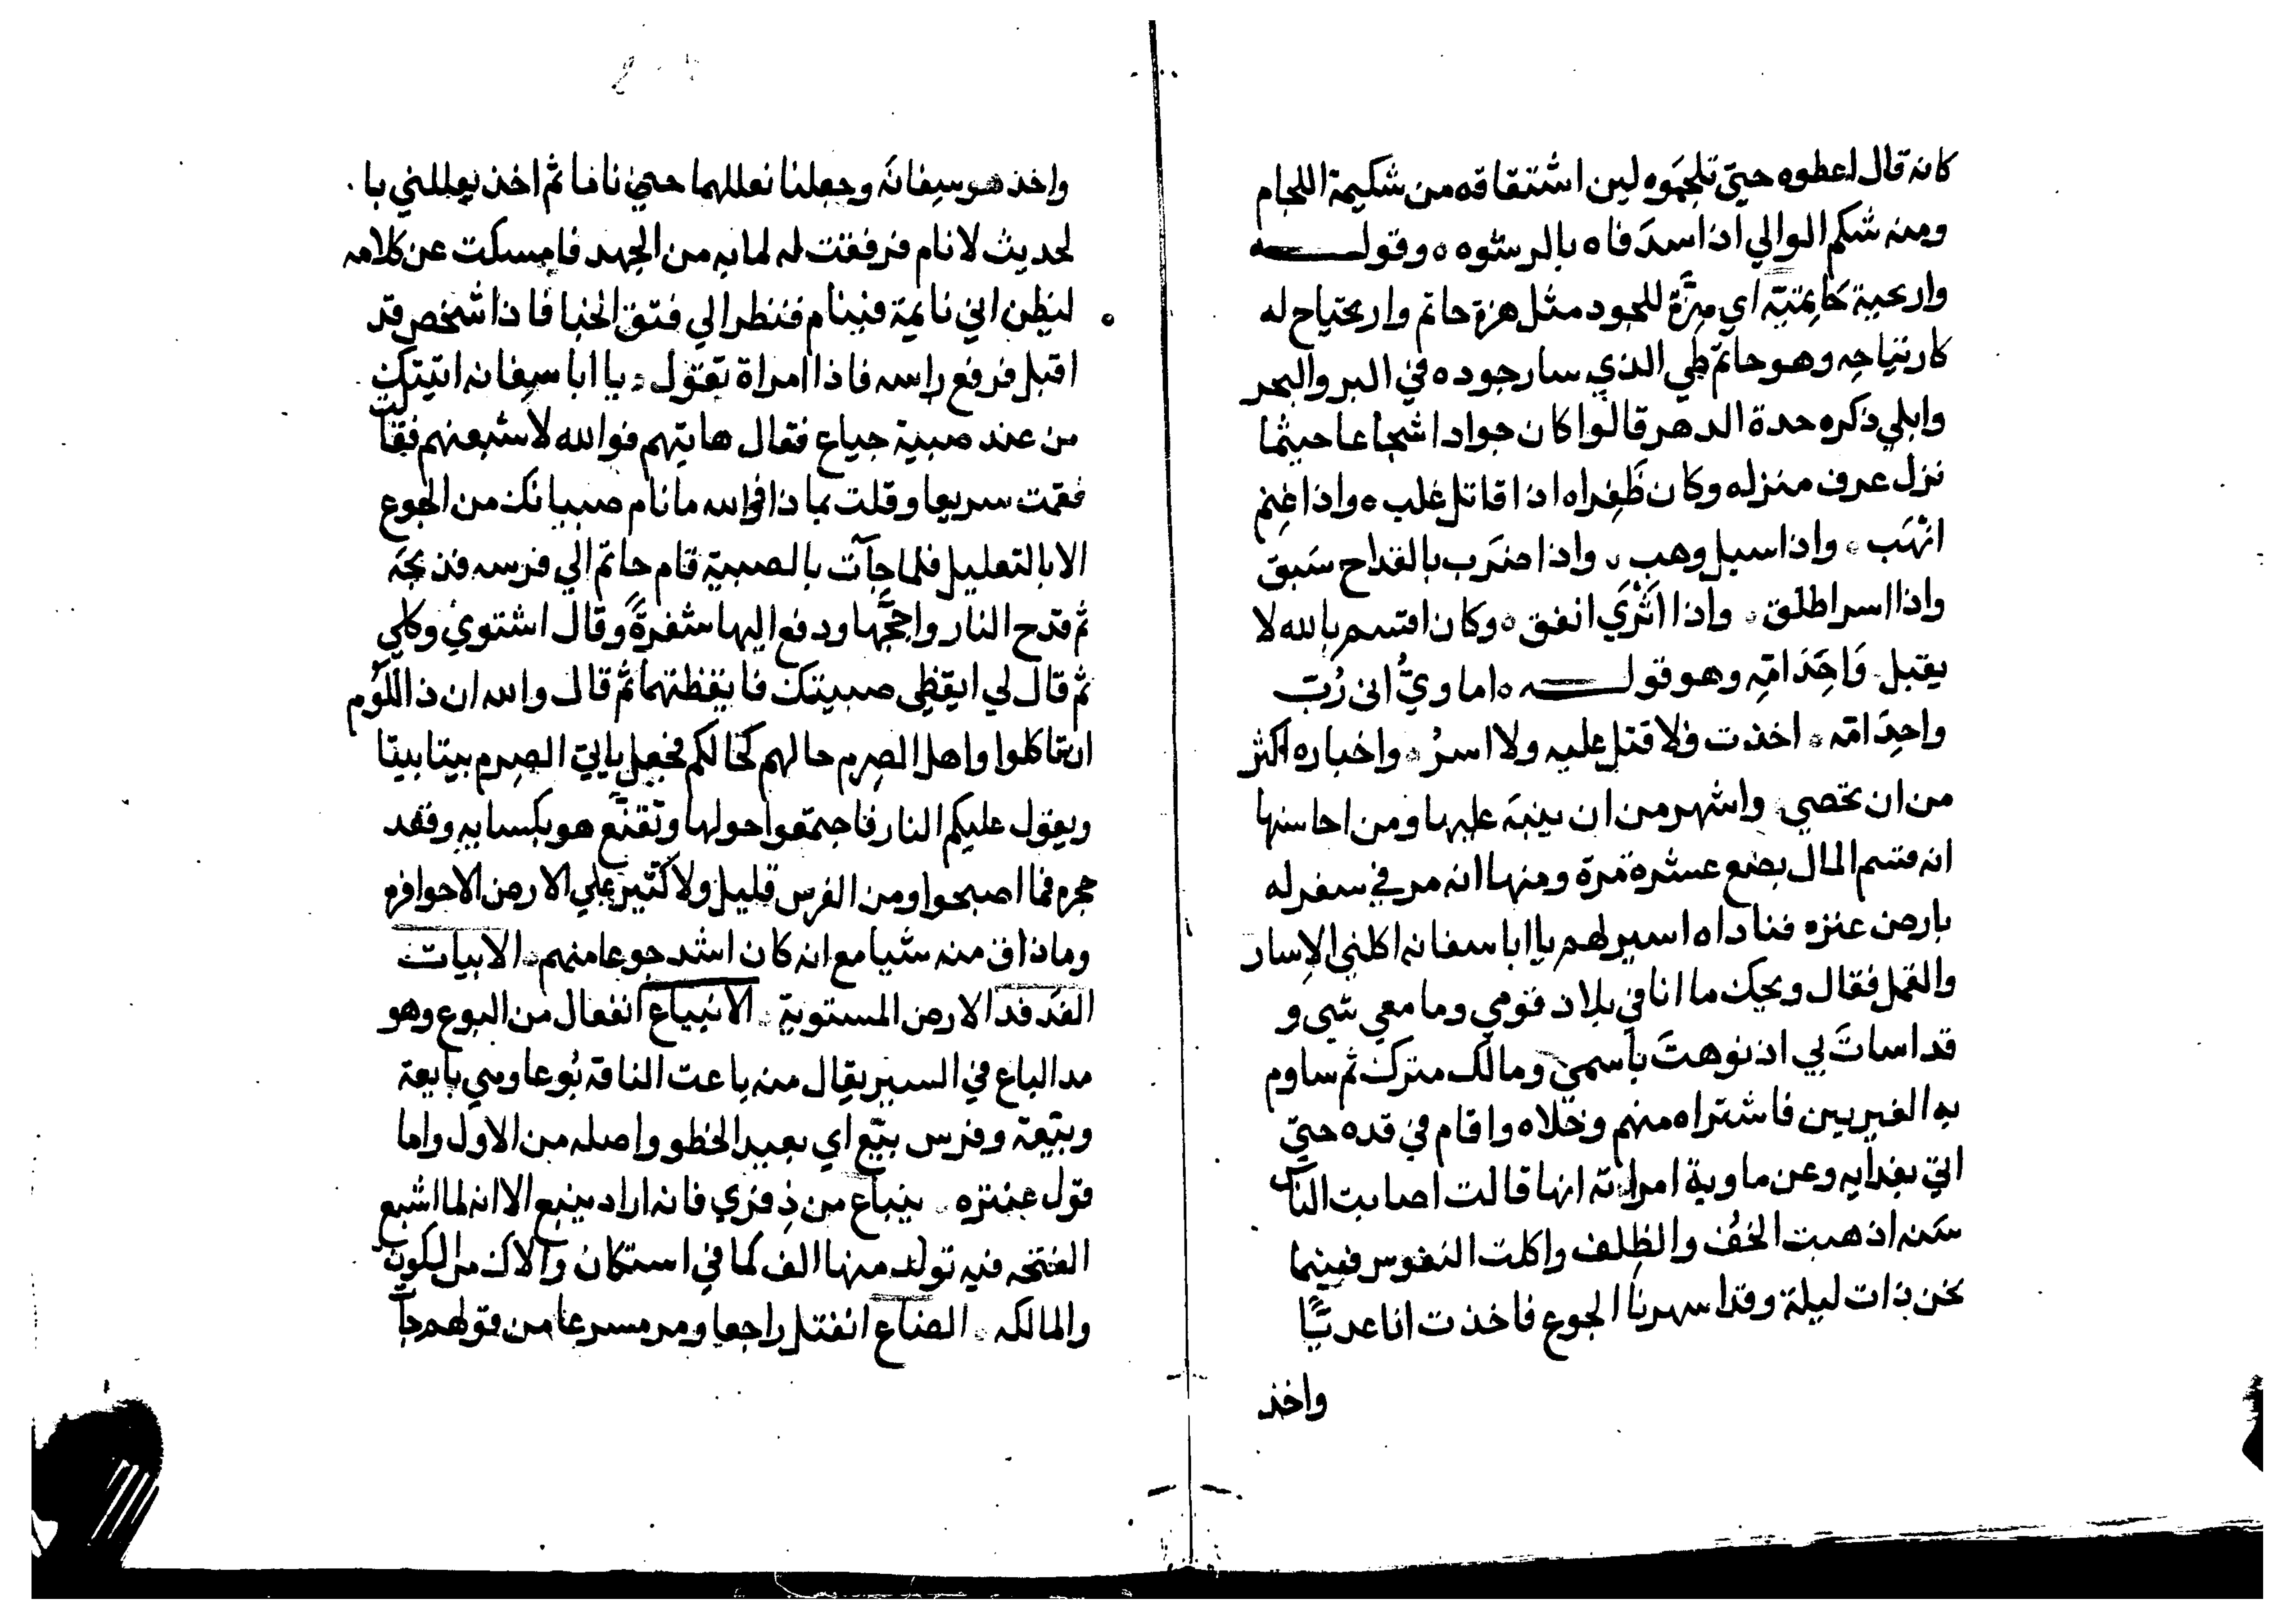 كانه قال اعطوه حتي تلجموه لين اشتقاقه من شكيمة اللجام
ومنه شكم الوالي اذا سدَ فاه بالرشوه ه وقولـــــــه
واريحية حَاتِمَتيّه اي مِزَّة للجود مثل هزة حاتم واريحتياح له
كارتياحِه وهو حاتم طي الذي سار جوده في البر والبحر
وابلي ذكره حدة الدهر قالوا كان جوادا شجاعا حيثما
نزل عرف منزله وكان ظَفِراه اذا قاتل غلب ه واذا غنِم
انْهَب ه واذا سيل وهب ه واذا ضرَب بالقداح سَبق
واذا اسر اطلق ه واذا اَثْرَي انفق ه وكان اقسم بالله لا
يقتل وَاحِدَ امّه وهو قولـــــه ه اماويُّ اني رُبّ
واحِدَ امّه ه اخذت فلا قتل عليه ولا اسرُ ه واخباره اكثر
من ان تحصي واشهر من ان ينبَه عليها ومن احاسنها
انه قسم المال بضع عشرة مَرة ومنها انه مر في سفر له
بارض عنزه فناداه اسير لهم يا ابا سفانه اكلني الاِسار
والقمل فقال ويحك ما انا في بلاد قومي وما معي شي و
قد اسات بي اذ نوهتَ باسمي ومالك مترك ثم ساوم
به العنزيين فاشتراه منهم وخلاه واقام في قده حتي
اتي بفدايه وعن ماوية امراته انها قالت اصابت الناس
سَنه اذهبت الخُف والظِلف واكلت النفوس فبينما
نحن ذات ليلة وقد اسهرنا الجوع فاخذت انا عديًّا
واخذ
واخذ هو سِفانَه وجعلنا نعللهما حتي ناما ثم اخذ يعللني با
لحديث لانام فرفقت له لما به من الجهد فامسكت عن كلامه
ليظن اني نايمة فينام فنظر الي فتق الخبا فاذا شخص قد
اقبل فرفع راسه فاذا امراة تقول ه يا ابا سِفانه اتيتك
من عند صبية جياع فقال هاتيهم فوالله لاشبعنهم فقالت
فقمت سريعا وقلت بماذا فوالله ما نام صبيانك من الجوع
الا بالتعليل فلما جآت بالصبية قام حاتم الي فرسه فذبحَه
ثم قدح النار واججَّها ودفع اليها شفرةً وقال اشتوي وكلي
ثم قال لي ايقظِي صبيتك فايقظتهما ثم قال والله ان ذا اللَوم
ان تاكلوا واهل الصرم حالهم كحالكم فجعل ياتي الصِرم بيتا بيتا
ويقول عليكم النار فاجتمعوا حولها وتقنَّع هو بكسايه وقعد
حجره فما اصبحوا ومن الفرس قليل ولا كثير علي الارض الا حوافره
وماذاق منه شيا مع انه كان اشد جوعا منهم ه الابيات
الفَدفد الارض المستوية ه الانبياع انفعال من البوع وهو
مد الباع في السير يقال منه باعت الناقة بُوعا وهي بايعة
وبيّعة وفرس بيّع اي بعيد الخطو واصله من الاول واما
قول عنتره ه ينباع من ذِفري فانه اراد ينبع الا انه لما اشبع
الفتحه فيه تولد منها الف كما في استكان والاك من السكون
والمالكه ه انفتل راجعا ومر مسرعا من قولهم جآ